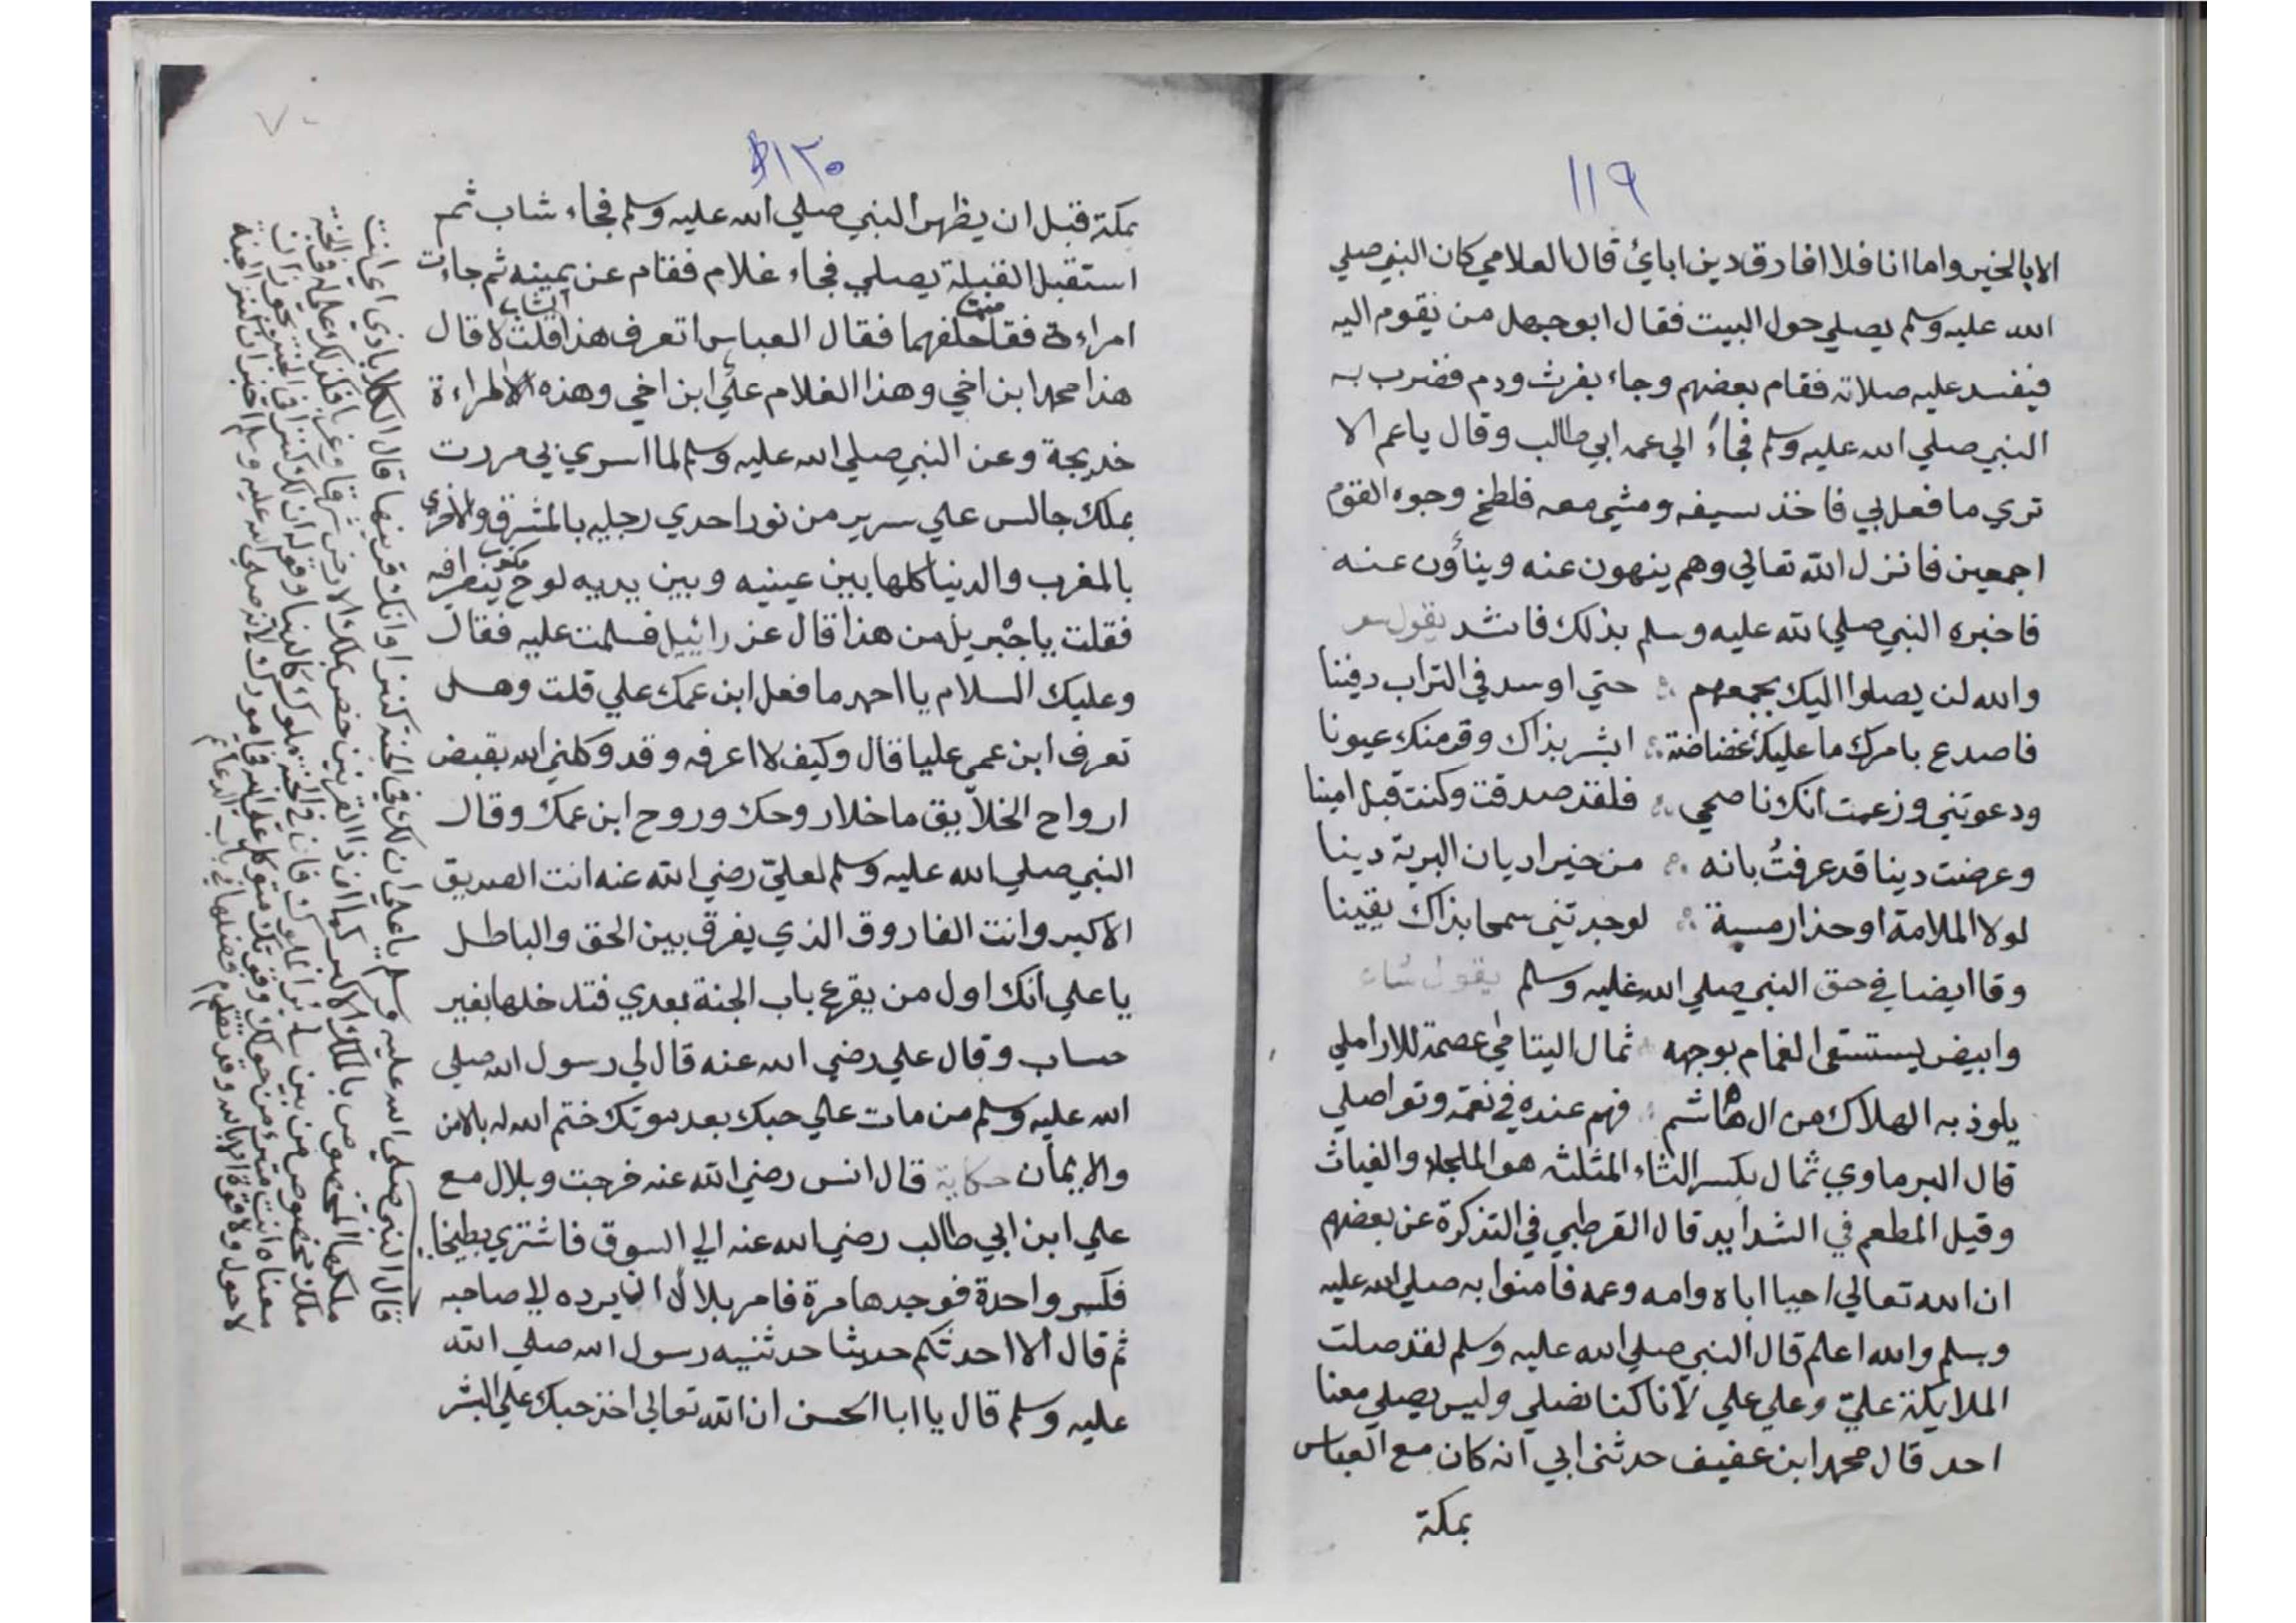 ١١٩
الا بالخير واما انا فلا افارق دين ابائ قال العلامي كان النبي صلي
الله عليه وسلم يصلي حول البيت فقال ابو جهل من يقوم اليه
فيفسد عليه صلاته فقام بعضهم وجاء بفرث ودم فضرب به
النبي صلي الله عليه وسلم فجاء الي عمه ابي طالب وقال يا عم الا
تري ما فعل بي فاخذ سيفه ومشي معه فلطخ وجوه القوم
اجمعين فانزل الله تعالي وهم ينهون عنه وينأون عنه
فاخبره النبي صلي الله عليه وسلم بذلك فانشد يقول
والله لن يصلوا اليك بجمعهم حتي اوسد في التراب دفينا
فاصدع بامرك ما عليك غضاضة ابشر بذاك وقر منك عيونا
ودعوتني وزعمت انك ناصحي فلقد صدقت وكنت قبل امينا
وعرضت دينا قد عرفت بانه من خير اديان البرية دينا
لولا الملامة او حذار مسبة لوجدتني سمحا بذاك يقينا
وقا ايضا في حق النبي صلي الله عليه وسلم يقول
وابيض يستسقي الغمام بوجهه ثمال اليتامي عصمة للاراملي
يلوذ به الهلاك من ال هاشم فهم عنده في نعمة وتواصلي
قال البرماوي ثمال بكسر الثاء المثلثه هو الملجاء والغياث
وقيل المطعم في الشدايد قال القرطبي في التذكرة عن بعضهم
ان الله تعالي احيا اباه وامه وعمه فامنوا به صلي الله عليه
وسلم والله اعلم قال النبي صلي الله عليه وسلم لقد صلت
الملايكة علي وعلي علي لانا كنا نصلي وليس يصلي معنا
احد قال محمد ابن عفيف حدثني ابي انه كان مع العباس
بمكة
١٢٠
بمكة قبل ان يظهر النبي صلي الله عليه وسلم فجاء شاب ثم
استقبل القبلة يصلي فجاء غلام فقام عن يمينه ثم جاءت
امراءة فقامت خلفهما فقال العباس اتعرف هذا الشاب قلت لا قال
هذا محمد ابن اخي وهذا الغلام علي ابن اخي وهذه الامراءة
خديجة وعن النبي صلي الله عليه وسلم لما اسري بي مررت
بملك جالس علي سرير من نور احدي رجليه بالمشرق والاخري
بالمغرب والدنيا كلها بين عينيه وبين يديه لوح مكتوب ينظر فيه
فقلت يا جبريل من هذا قال عزرائيل فسلمت عليه فقال
وعليك السلام يا احمد ما فعل ابن عمك علي قلت وهل
تعرف ابن عمي عليا قال وكيف لا اعرفه وقد وكلني الله بقبض
ارواح الخلايق ما خلا روحك وروح ابن عمك وقال
النبي صلي الله عليه وسلم لعلي رضي الله عنه انت الصديق
الاكبر وانت الفاروق الذي يفرق بين الحق والباطل
يا علي انك اول من يقرع باب الجنة بعدي فتدخلها بغير
حساب وقال علي رضي الله عنه قال لي رسول الله صلي
الله عليه وسلم من مات علي حبك بعد موتك ختم الله له بالامن
والايمان حكاية قال انس رضي الله عنه خرجت وبلال مع
علي ابن ابي طالب رضي الله عنه الي السوق فاشتري بطيخا
فكسر واحدة فوجدها مرة فامر بلالا ان يرده الي صاحبه
ثم قال الا احدثكم حديثا حدثنيه رسول الله صلي الله
عليه وسلم قال يا ابا الحسن ان الله تعالي اخذ حبك علي البشر
قال النبي صلي الله عليه وسلم يا علي ان لك في الجنة كنزا وانك قرنيها قال الكلاباذي اي انت
ملكها المخصوص بالملك الاكبر كما ان ذا القرنين خص بملك الارض شرقا وغربا
ملك مخصوص من بين ملوك الجنة
معناه انت متبرء من حولك وقوتك متوكل علي الله
لا حول ولا قوة الا بالله وقد تقدم فضلها في باب الدعاء